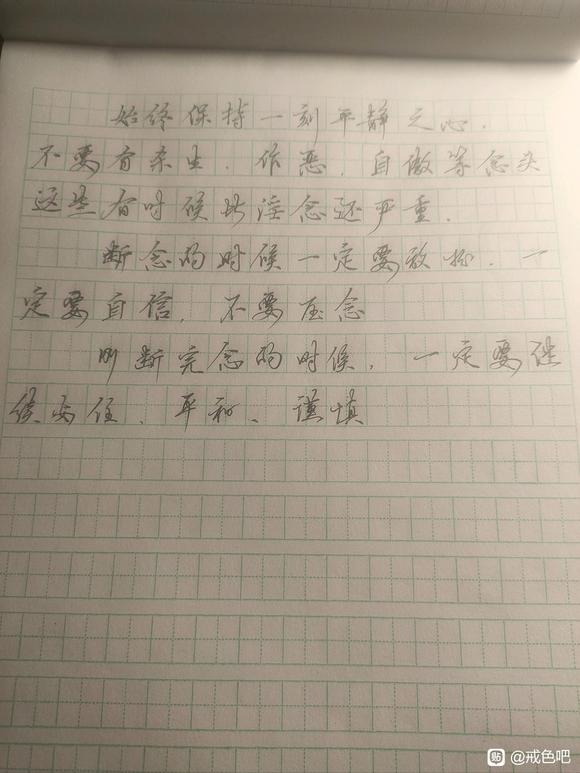 始终保持一刻平静之心.
不要有杀生.作恶.自傲等念头
这些有时候比淫念还严重.
断念的时候一定要放松.一
定要自信.不要压念
刚断完念的时候,一定要继
续安住、平和、谨慎
贴 @戒色吧